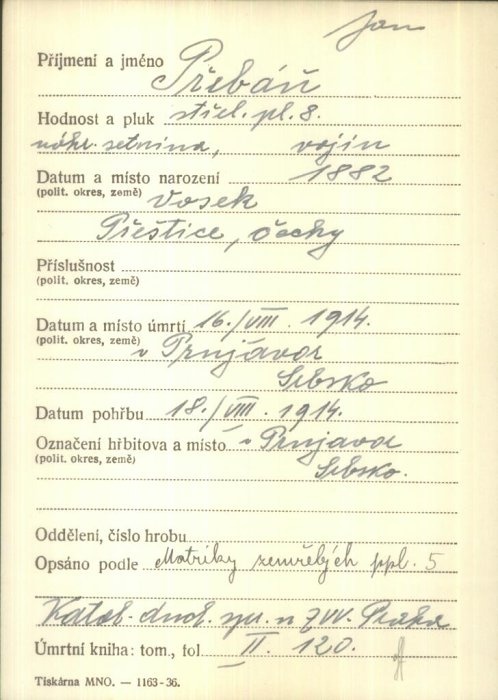 Jan
Příjmení a jméno Přebáň
Hodnost a pluk střel. pl. 8.
náhr. setnina, vojín
Datum a místo narození 1882
(polit. okres, země) Vosek
Přeštice, Čechy
Příslušnost
(polit. okres, země)
Datum a místo úmrtí 16./VIII. 1914.
(polit. okres, země) v Prnjavor
Srbsko
Datum pohřbu 18./VIII. 1914.
Označení hřbitova a místo v Prnjavor
(polit. okres, země) Srbsko.
Oddělení, číslo hrobu
Opsáno podle Matriky zemřelých ppl. 5
Katol. duch. spr. u ZVV. Praha
Úmrtní kniha: tom., fol II. 120.
Tiskárna MNO. — 1163-36.